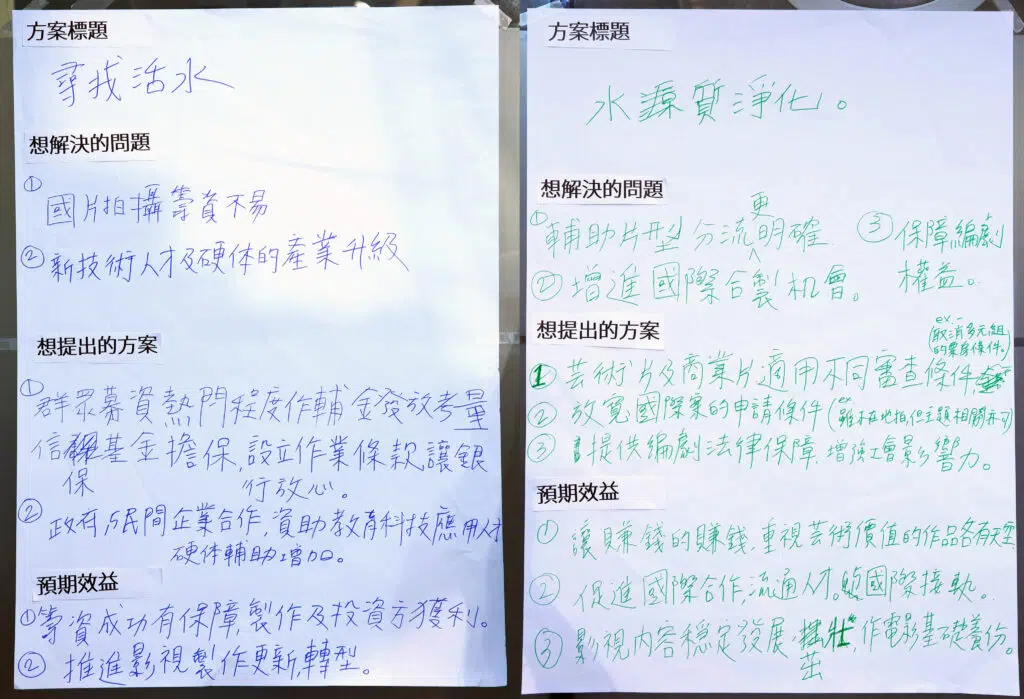 方案標題
尋找活水
想解決的問題
① 國片拍攝籌資不易
② 新技術人才及硬体的產業升級
想提出的方案
① 群眾募資熱門程度作輔金發放考量
信保基金擔保,設立作業條款讓銀
行放心。
② 政府與民間企業合作,資助教育科技應用人才
硬体輔助增加。
預期效益
① 籌資成功有保障,製作及投資方獲利。
② 推進影視製作更新,轉型。
方案標題
水源質淨化。
想解決的問題
① 輔助片型分流更明確
② 增進國際合製機會。
③ 保障編劇
權益。
想提出的方案
ex.-
(取消多元組
的票房條件。)
1 芸術片及商業片適用不同審查條件
② 放寬國際案的申請條件(ex 雖不在地拍,但主題相關亦可)
③ 提供編劇法律保障,增強工會影響力。
預期效益
① 讓賺錢的賺錢,重視芸術價值的作品各有天空
② 促進國際合作,流通人才。與國際接軌。
③ 影視內容穩定發展,茁壯,作電影基礎養份。